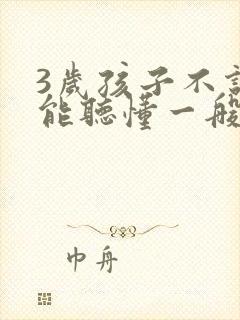 3歲孩子不
能聽懂一般
巾舟